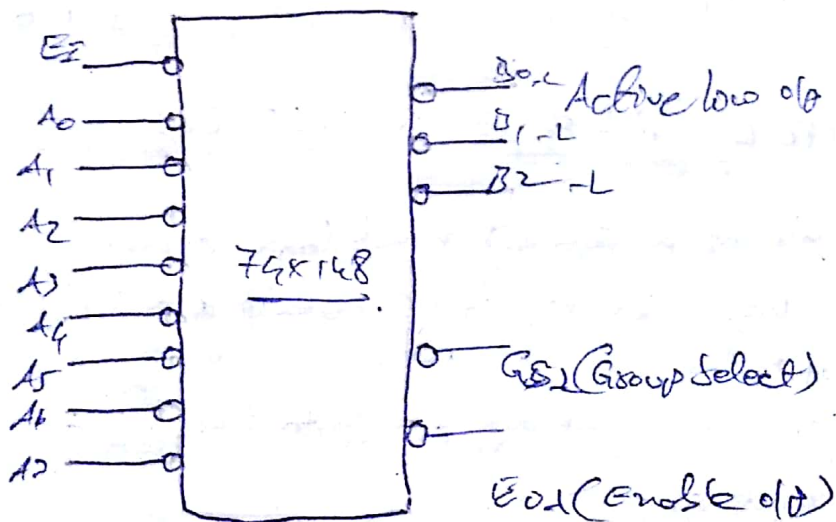 EI
A0
A1
A2
A3
A4
A5
A6
A7
74x148
B0-L Active low o/p
B1-L
B2-L
GS L (Group Select)
EO L (Enable o/p)